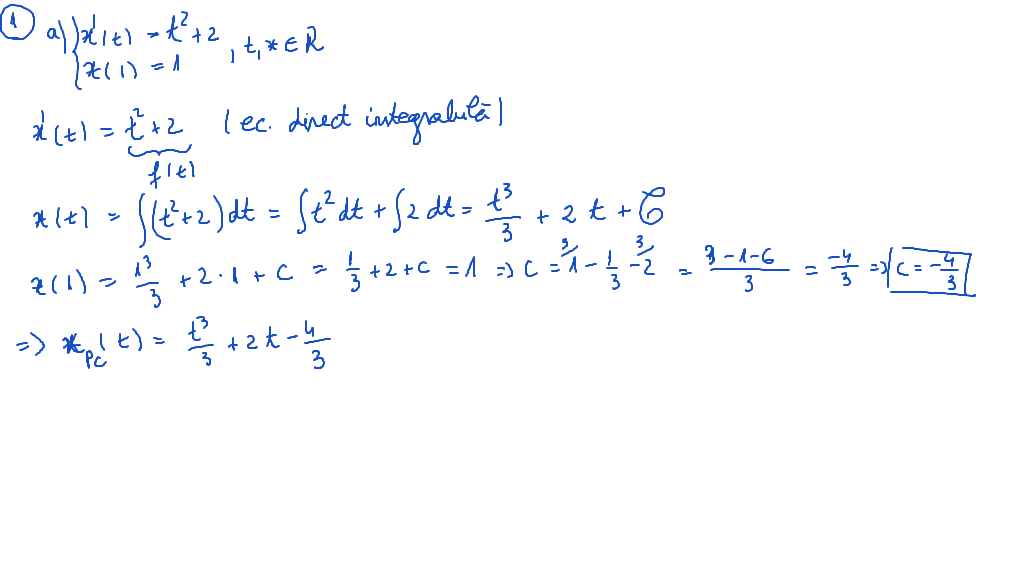 1 a) { x'(t) = t² + 2
{ x(1) = 1 , t, x ∈ ℝ
x'(t) = t² + 2 (ec. direct integrabilă)
f(t)
x(t) = ∫(t² + 2) dt = ∫t² dt + ∫2 dt = t³/3 + 2t + C
x(1) = 1³/3 + 2·1 + C = 1/3 + 2 + C = 1 => C = ³⁾1 - 1/3 - ³⁾2 = (3-1-6)/3 = -4/3 => C = -4/3
=> x_PC(t) = t³/3 + 2t - 4/3